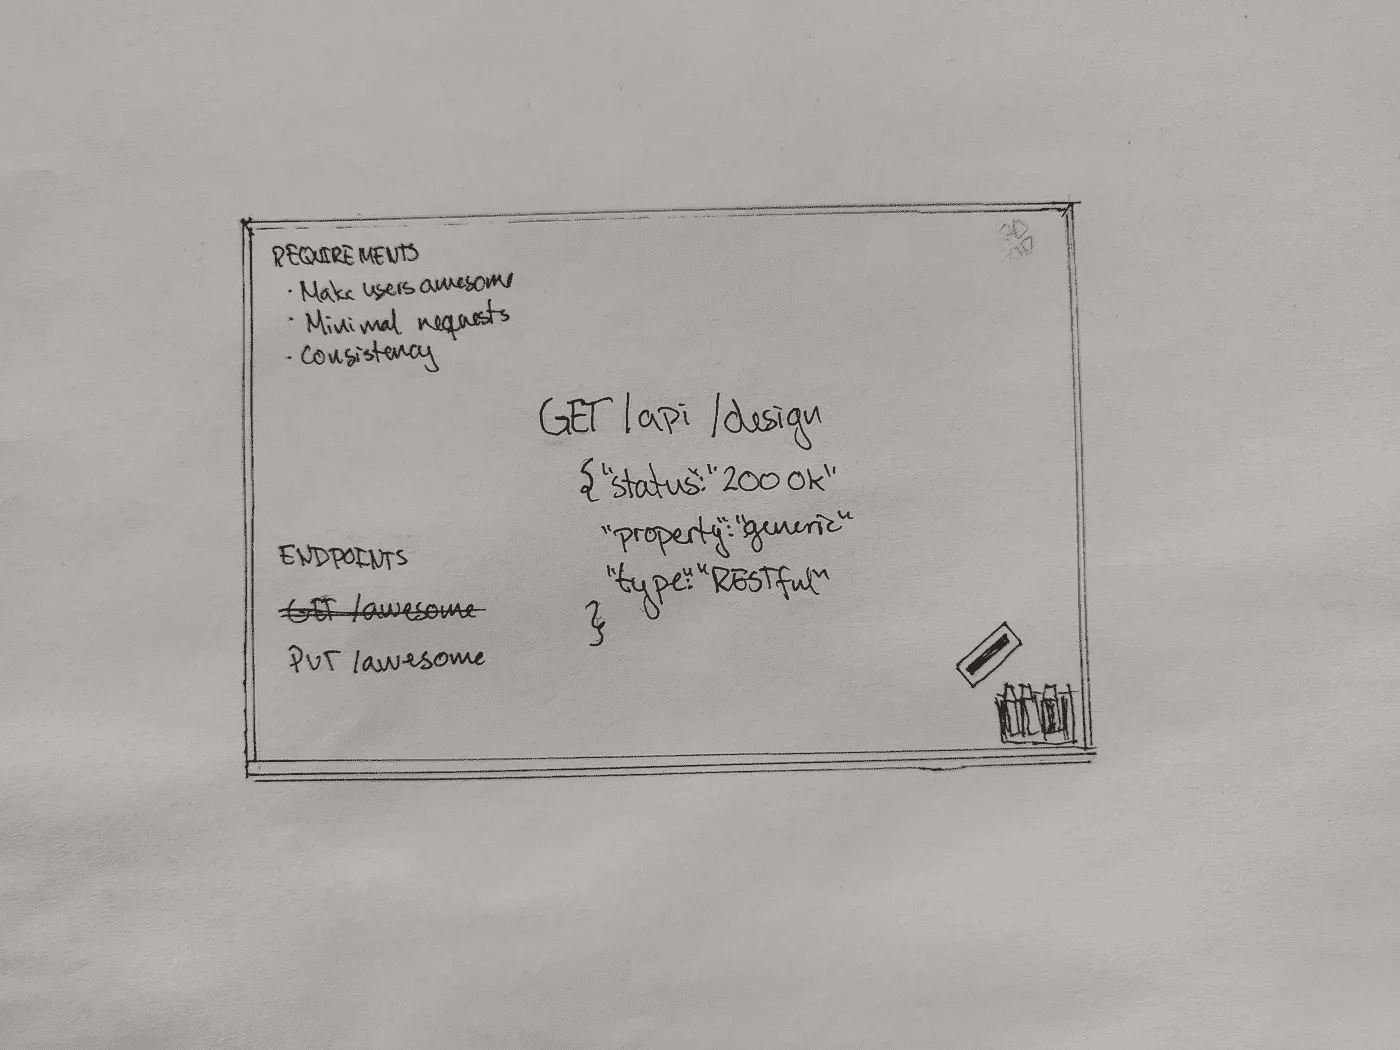 REQUIREMENTS
· Make users awesome
· Minimal requests
· Consistency
GET /api /design
{"status":"200 OK"
"property":"generic"
"type":"RESTful"
}
ENDPOINTS
GET /awesome
PUT /awesome